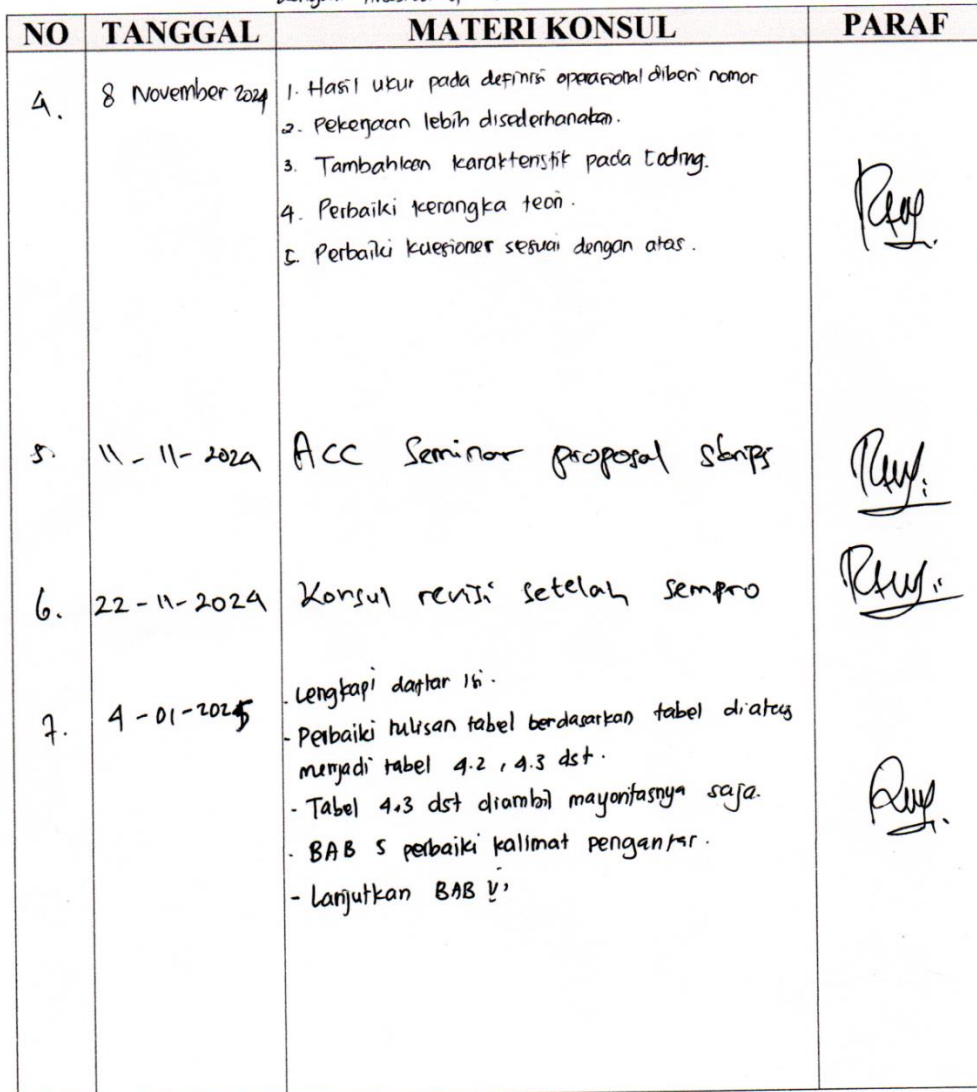 NO TANGGAL MATERI KONSUL PARAF
4. 8 November 2024 1. Hasil ukur pada definisi operasional diberi nomor
2. Pekerjaan lebih disederhanakan.
3. Tambahkan karakteristik pada coding.
4. Perbaiki kerangka teori.
5. Perbaiki kuesioner sesuai dengan atas.
5. 11-11-2024 Acc Seminar proposal skripsi
6. 22-11-2024 Konsul revisi setelah sempro
7. 4-01-2025 - Lengkapi daftar isi.
- Perbaiki tulisan tabel berdasarkan tabel diatas
menjadi tabel 4.2, 4.3 dst.
- Tabel 4.3 dst diambil mayoritasnya saja.
- BAB 5 perbaiki kalimat pengantar.
- Lanjutkan BAB